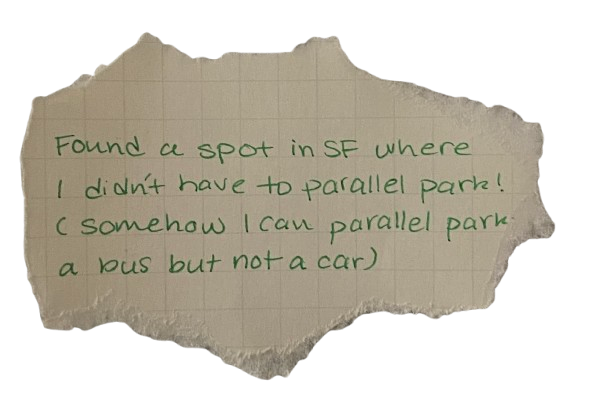 Found a spot in SF where
I didn't have to parallel park!
(somehow I can parallel park
a bus but not a car)